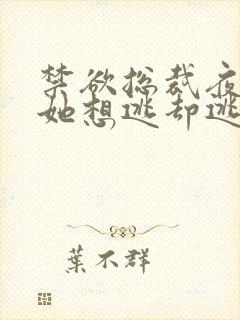 禁欲总裁夜
她想逃却逃
葉不群